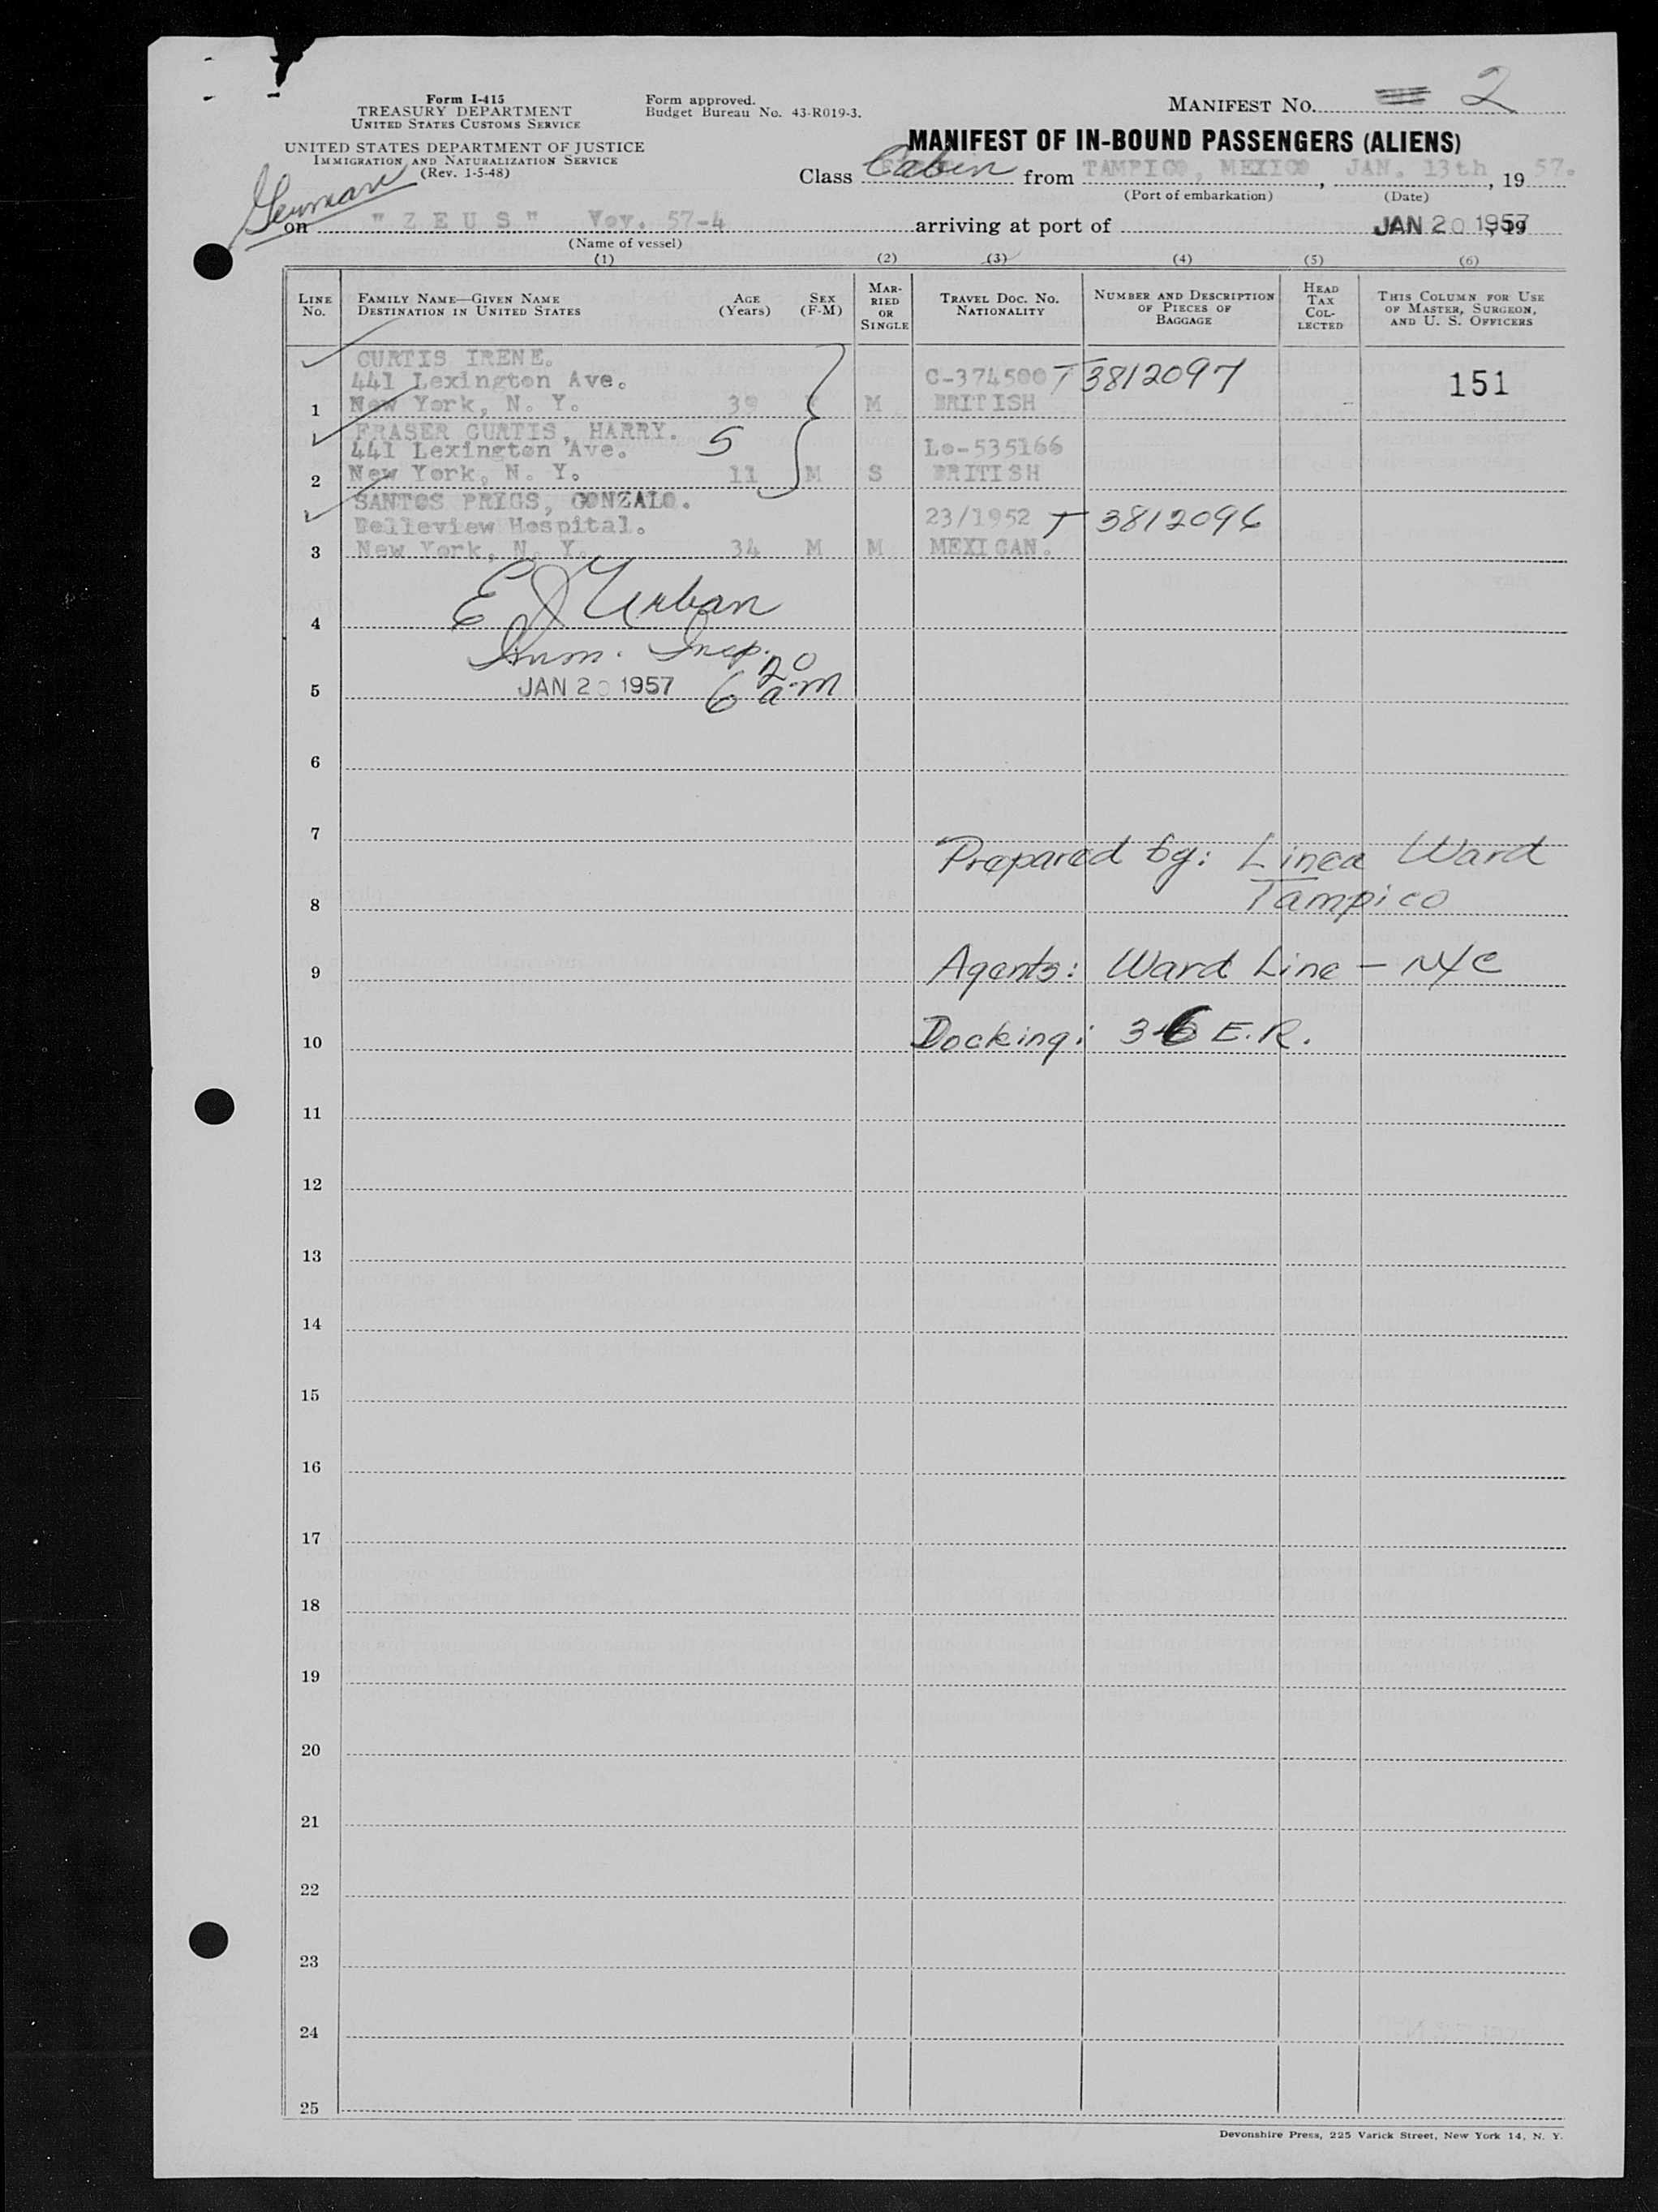 Form I-415
TREASURY DEPARTMENT
UNITED STATES CUSTOMS SERVICE
UNITED STATES DEPARTMENT OF JUSTICE
IMMIGRATION AND NATURALIZATION SERVICE
(Rev. 1-5-48)
Form approved.
Budget Bureau No. 43-R019-3.
MANIFEST NO. 2
MANIFEST OF IN-BOUND PASSENGERS (ALIENS)
Class Cabin from TAMPICO, MEXICO, JAN. 13th, 19 57.
(Port of embarkation) (Date)
German
on "ZEUS" Voy. 57-4 arriving at port of JAN 20 1957, 19
(Name of vessel)
(1) (2) (3) (4) (5) (6)
LINE NO.
FAMILY NAME—GIVEN NAME
DESTINATION IN UNITED STATES
AGE (Years)
SEX (F-M)
MARRIED OR SINGLE
TRAVEL DOC. NO.
NATIONALITY
NUMBER AND DESCRIPTION OF PIECES OF BAGGAGE
HEAD TAX COLLECTED
THIS COLUMN FOR USE OF MASTER, SURGEON, AND U. S. OFFICERS
CURTIS IRENE.
441 Lexington Ave. C-374500 T 3812097 151
1 New York, N. Y. 39 M BRITISH
FRASER CURTIS, HARRY. 5
441 Lexington Ave. Lo-535166
2 New York, N. Y. 11 M S BRITISH
SANTOS PRIGS, GONZALO.
Belleview Hospital. 23/1952 T 3812096
3 New York, N. Y. 34 M M MEXICAN.
E J Urban
4
Imm. Insp.
5 JAN 20 1957 6 20 am
6
7
Prepared by: Linea Ward
8 Tampico
9 Agents: Ward Line - NYC
10 Docking: 36 E.R.
11
12
13
14
15
16
17
18
19
20
21
22
23
24
25
Devonshire Press, 225 Varick Street, New York 14, N. Y.